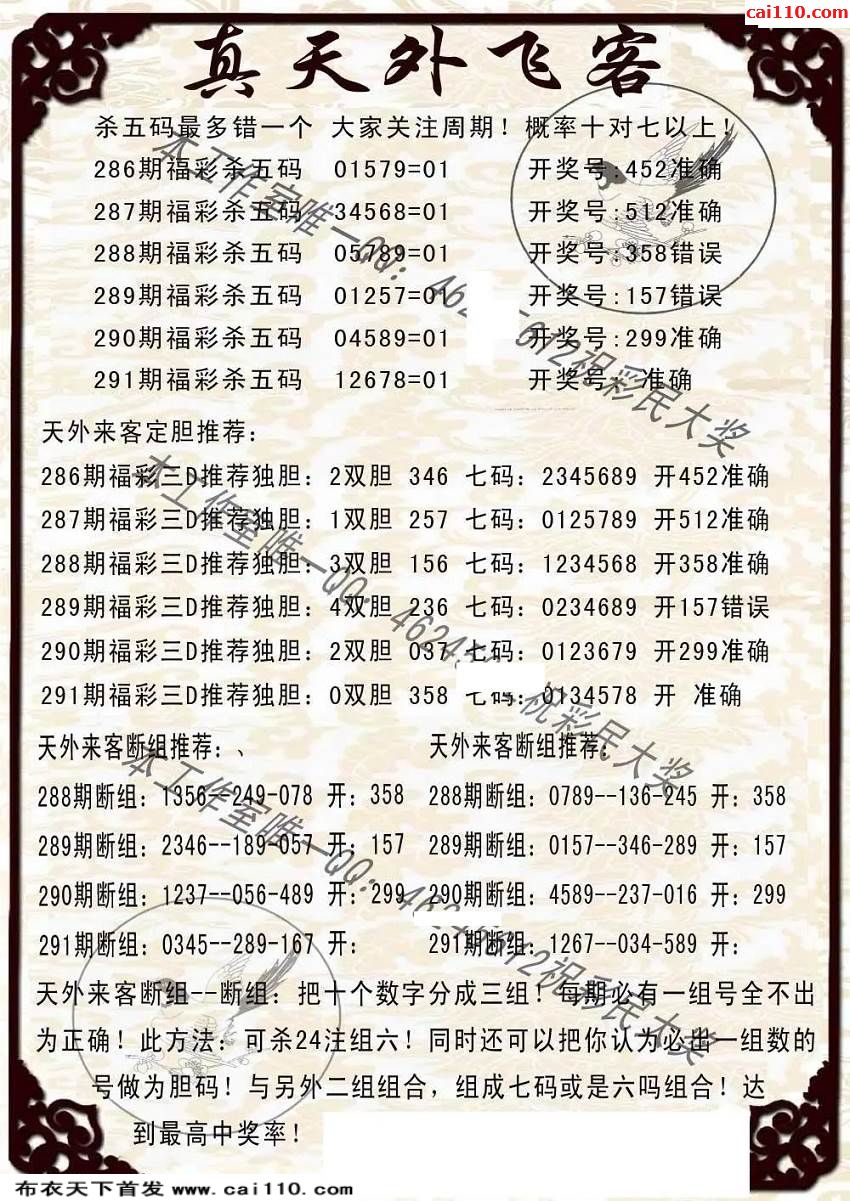 cai110.com
真天外飞客
杀五码最多错一个 大家关注周期！概率十对七以上！
286期福彩杀五码 01579=01 开奖号:452准确
287期福彩杀五码 34568=01 开奖号:512准确
288期福彩杀五码 05789=01 开奖号:358错误
289期福彩杀五码 01257=01 开奖号:157错误
290期福彩杀五码 04589=01 开奖号:299准确
291期福彩杀五码 12678=01 开奖号 准确
天外来客定胆推荐：
286期福彩三D推荐独胆：2双胆 346 七码：2345689 开452准确
287期福彩三D推荐独胆：1双胆 257 七码：0125789 开512准确
288期福彩三D推荐独胆：3双胆 156 七码：1234568 开358准确
289期福彩三D推荐独胆：4双胆 236 七码：0234689 开157错误
290期福彩三D推荐独胆：2双胆 037 七码：0123679 开299准确
291期福彩三D推荐独胆：0双胆 358 七码：0134578 开 准确
天外来客断组推荐：、 天外来客断组推荐：
288期断组：1356--249-078 开：358 288期断组：0789--136-245 开：358
289期断组：2346--189-057 开：157 289期断组：0157--346-289 开：157
290期断组：1237--056-489 开：299 290期断组：4589--237-016 开：299
291期断组：0345--289-167 开： 291期断组：1267--034-589 开：
天外来客断组--断组：把十个数字分成三组！每期必有一组号全不出
为正确！此方法：可杀24注组六！同时还可以把你认为必出一组数的
号做为胆码！与另外二组组合，组成七码或是六吗组合！达
到最高中奖率！
本工作室唯一QQ：462 612祝彩民大奖
本工作室唯一QQ：4624 祝彩民大奖
本工作室唯一QQ：462 612祝彩民大奖
布衣天下首发 www.cai110.com